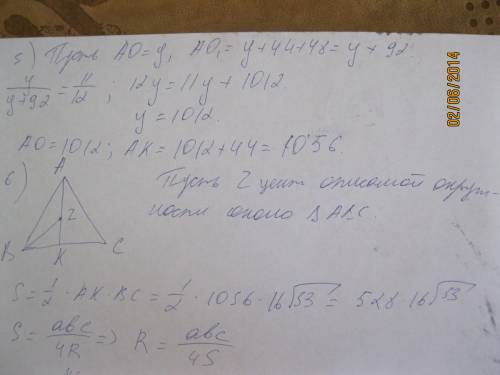 5) Пусть AO=y, AO₁=y+44+48=y+92
y/(y+92)=11/12; 12y=11y+1012
y=1012.
AO=1012; AK=1012+44=1056.
6) Пусть Z центр описаной окруж-
ности около ΔABC.
A
Z
B K C
S=1/2·AK·BC=1/2·1056·16√53=528·16√53
S=abc/4R=>R=abc/4S
02/06/2014